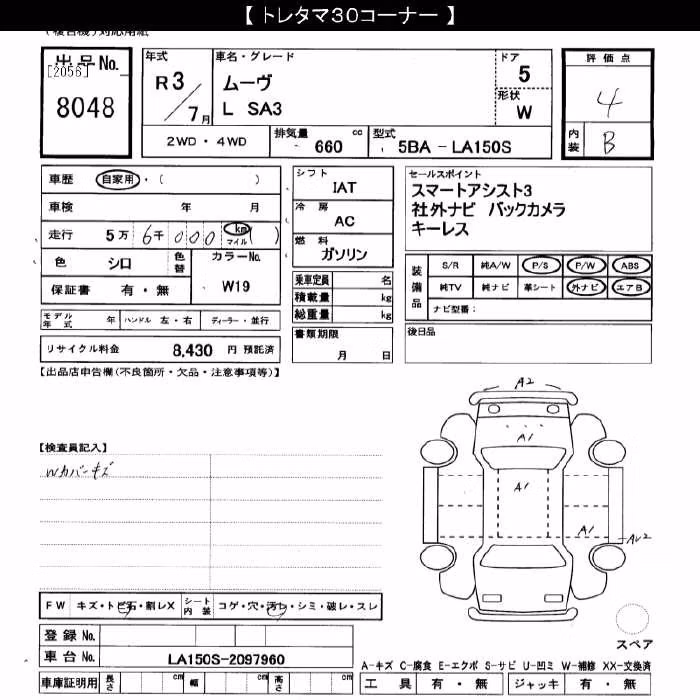 【 トレタマ30コーナー 】
出品No.
[2056]
8048
年式
R 3 / 7 月
車名・グレード
ムーヴ
L SA3
ドア
5
形状
W
評価点
4
内装
B
2WD・4WD
排気量 660 cc
型式 5BA - LA150S
車歴 自家用・( )
車検 年 月
走行 5万 6千 000 km マイル ( )
色 シロ 色替
カラーNo.
W19
保証書 有・無
シフト
IAT
冷房
AC
燃料
ガソリン
乗車定員 名
積載量 kg
総重量 kg
セールスポイント
スマートアシスト3
社外ナビ バックカメラ
キーレス
装備品
S/R 純A/W P/S P/W ABS
純TV 純ナビ 革シート 外ナビ エアB
ナビ型番:
モデル年式 年 ハンドル 左・右 ディーラー・並行
リサイクル料金 8,430 円 預託済
書類期限
月 日
後日品
【出品店申告欄(不良箇所・欠品・注意事項等)】
【検査員記入】
Wカバーキズ
A2
A1
A1
A1
AU2
FW キズ・トビ石・割レX
シート内装 コゲ・穴・汚レ・シミ・破レ・スレ
登録No.
車台No. LA150S-2097960
車庫証明用 長さ cm 幅 cm 高さ cm
スペア
A-キズ C-腐食 E-エクボ S-サビ U-凹ミ W-補修 XX-交換済
工具 有・無 ジャッキ 有・無